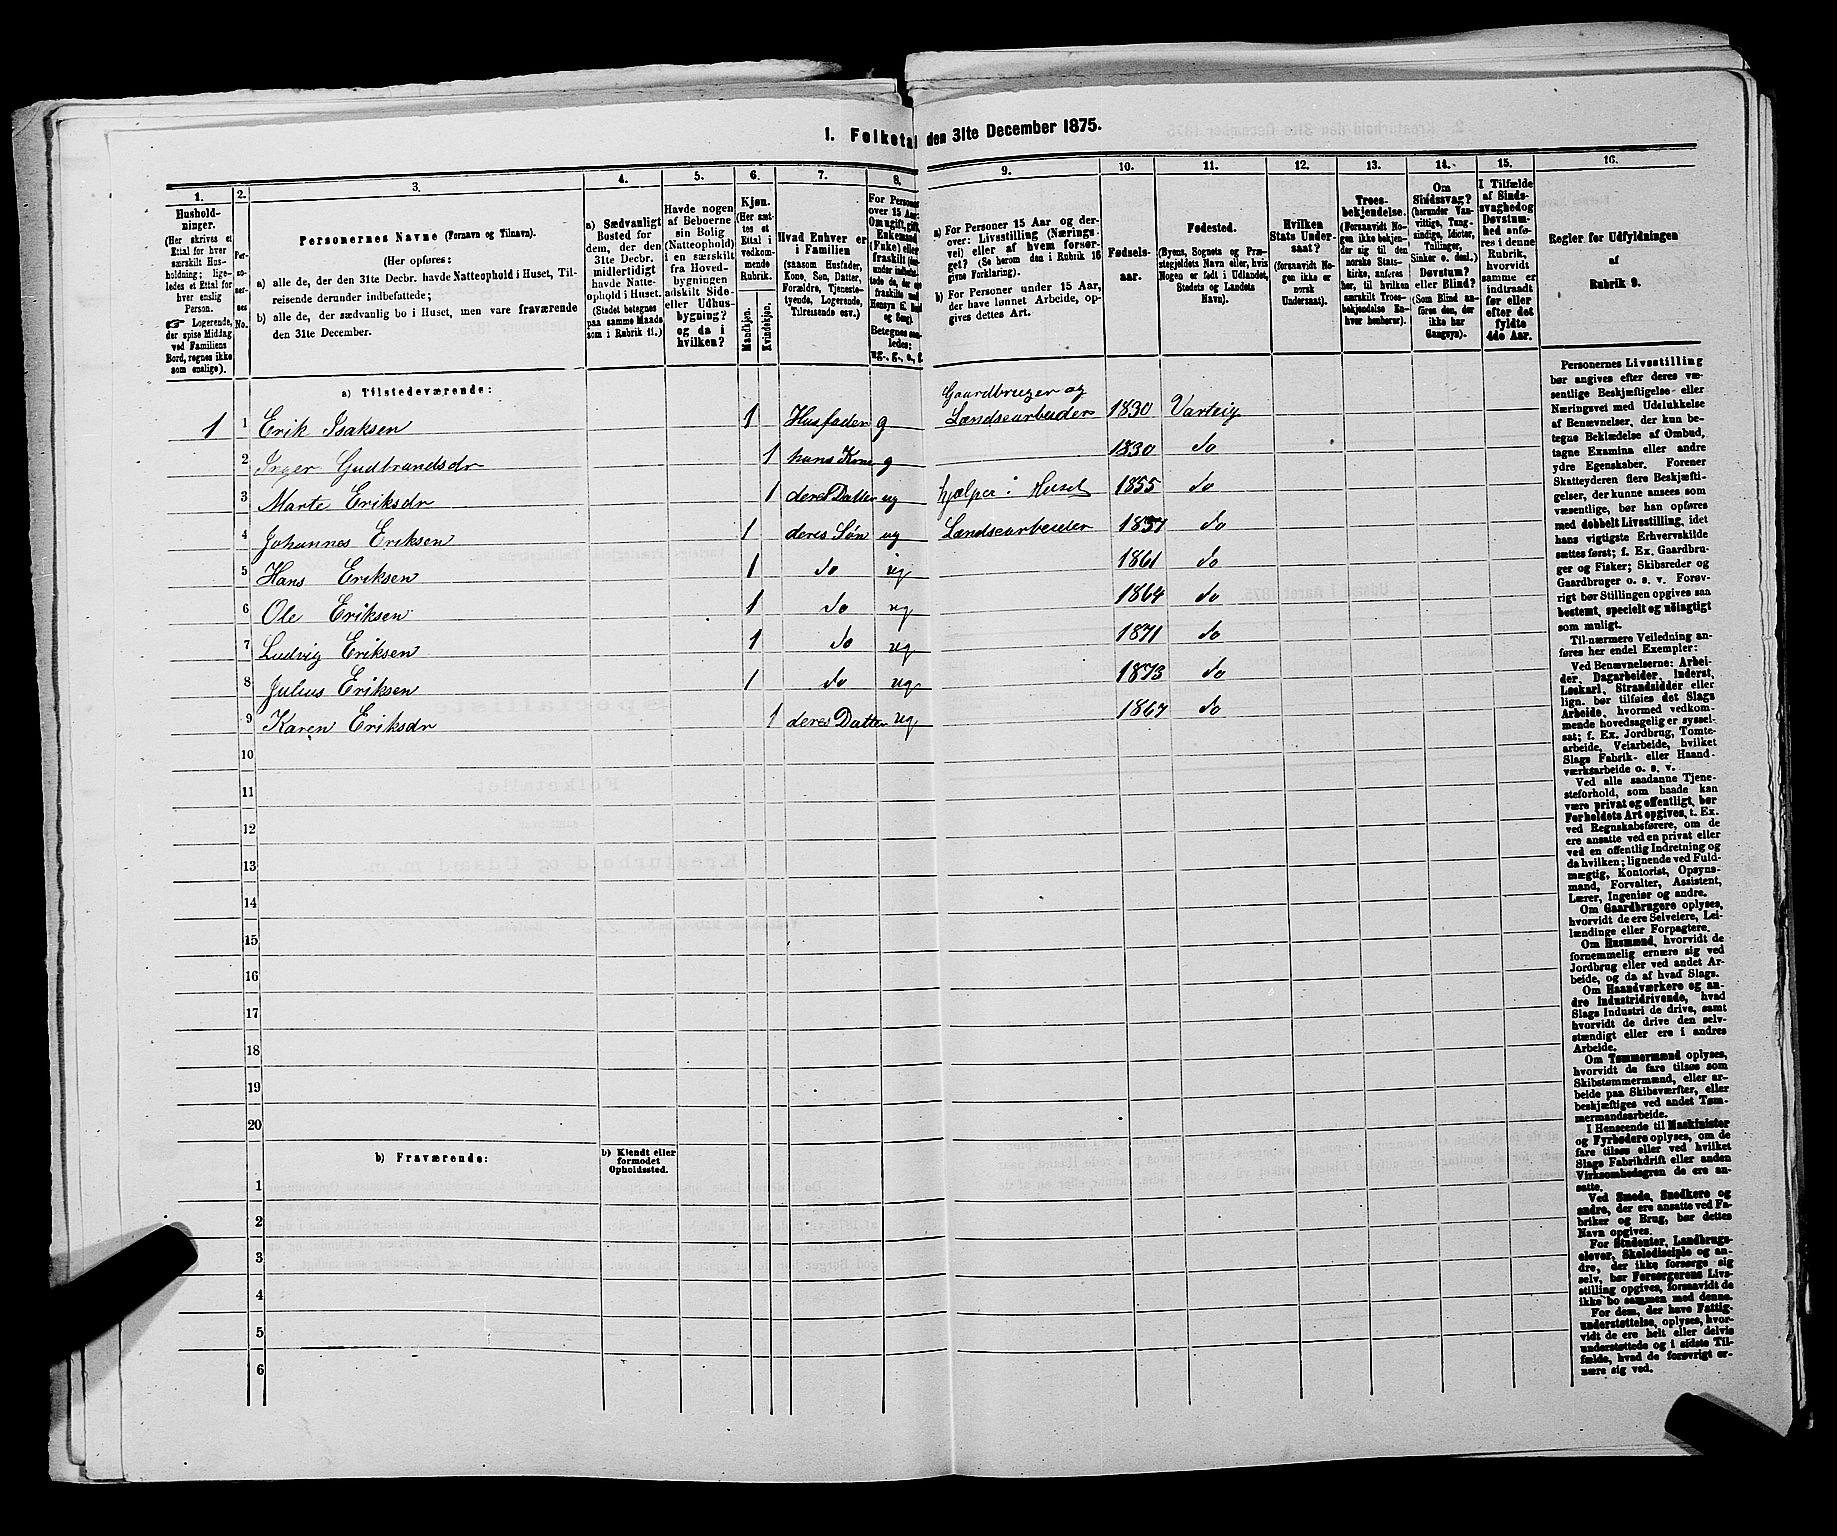 1. Folketal den 31te December 1875.
1.
2.
3.
4.
5.
6.
7.
8.
9.
10.
11.
12.
13.
14.
15.
16.
Hushold-
ninger.
(Her skrives et
Ettal for hver
særskilt Hus-
holdning; lige-
ledes et Ettal for
hver enslig
Person.
☞ Logerende,
der spise Middag
ved Familiens
Bord, regnes ikke
som enslige).
Per-
so-
ner-
nes
No.
Personernes Navne (Fornavn og Tilnavn).
(Her opføres:
a) alle de, der den 31te Decbr. havde Natteophold i Huset, Til-
reisende derunder indbefattede;
b) alle de, der sædvanlig bo i Huset, men vare fraværende
den 31te December.
a) Sædvanligt
Bosted for
dem, der den
31te Decbr.
midlertidigt
havde Natte-
ophold i Huset.
(Stedet betegnes
paa samme Maade
som i Rubrik 11.)
Havde nogen
af Beboerne
sin Bolig
(Natteophold)
i en særskilt
fra Hoved-
bygningen
adskilt Side-
eller Udhus-
bygning?
og da i
hvilken?
Kjøn.
(Her sæt-
tes et
Ettal i
vedkom-
mende
Rubrik.
Mandkjøn.
Kvindekjøn.
Hvad Enhver er
i Familien
(saasom Husfader,
Kone, Søn, Datter,
Forældre, Tjeneste-
tyende, Logerende,
Tilreisende osv.)
For Personer
over 15 Aar:
Om ugift, gift,
Enkemand
(Enke) eller
fraskilt
Betegnes saa-
ledes:
ug., g., e., f.
a) For Personer 15 Aar og der-
over: Livsstilling (Nærings-
vei) eller af hvem forsør-
get? (Se herom den i Rubrik 16
givne Forklaring).
b) For Personer under 15 Aar,
der have lønnet Arbeide, op-
gives dettes Art.
Fødsels-
aar.
Fødested.
(Byens, Sognets og Præ-
stegjeldets Navn eller, hvis
Nogen er født i Udlandet,
Stedets og Landets
Navn).
Hvilken
Stats Under-
saat?
(forsaavidt No-
gen ikke er
norsk
Undersaat).
Troes-
bekjendelse.
(Forsaavidt No-
gen ikke bekjen-
der sig til den
norske Stats-
kirke, anføres
her, til hvilken
særskilt Troes-
bekjendelse En-
hver henhører).
Om
Sindssvag?
(herunder Van-
vittige, Tung-
sindige, Idioter,
Tullinger,
Sinker o. desl.)
Døvstum?
eller Blind?
(Som Blind an-
føres den, der
ikke har
Gangsyn).
I Tilfælde
af Sinds-
svaghed og
Døvstum-
hed anfø-
res i denne
Rubrik,
hvorvidt
samme er
indtraadt
før eller
efter det
fyldte
4de Aar.
Regler for Udfyldningen
af
Rubrik 9.
a) Tilstedeværende:
1 1 Erik Isaksen 1 Husfader g Gaardbruger og
Landsearbeider 1830 Varteig
2 Inger Gudbrandsdr 1 hans Kone g 1830 do
3 Marte Eriksdr 1 deres Datter ug hjælper i Huset 1855 do
4 Johannes Eriksen 1 deres Søn ug Landsearbeider 1857 do
5 Hans Eriksen 1 do ug 1861 do
6 Ole Eriksen 1 do ug 1864 do
7 Ludvig Eriksen 1 do ug 1871 do
8 Julius Eriksen 1 do ug 1873 do
9 Karen Eriksdr 1 deres Datter ug 1867 do
10
11
12
13
14
15
16
17
18
19
20
b) Fraværende:
b) Kjendt eller
formodet
Opholdssted.
1
2
3
4
5
6
Personernes Livsstilling
bør angives efter deres væ-
sentlige Beskjæftigelse eller
Næringsvei med Udelukkelse
af Benævnelser, der kun be-
tegne Beklædelse af Ombud,
tagne Examina eller andre
ydre Egenskaber. Forener
Skatteyderen flere Beskjæfti-
gelser, der kunne ansees som
væsentlige, bør han opføres
med dobbelt Livsstilling, idet
hans vigtigste Erhvervskilde
sættes først; f. Ex. Gaardbru-
ger og Fisker; Skibsreder og
Gaardbruger o. s. v. Forøv-
rigt bør Stillingen opgives saa
bestemt, specielt og nøiagtigt
som muligt.
Til nærmere Veiledning an-
føres her endel Exempler:
Ved Benævnelserne: Arbei-
der, Dagarbeider, Inderst,
Løskarl, Strandsidder eller
lign. bør tilføies det Slags
Arbeide, hvormed vedkom-
mende hovedsagelig er syssel-
sat; f. Ex. Jordbrug, Tomte-
arbeide, Veiarbeide, hvilket
Slags Fabrik- eller Haand-
værksarbeide o. s. v.
Ved alle saadanne Tjene-
steforhold, som baade kan
være privat og offentligt, bør
Forholdets Art opgives, t. Ex.
ved Regnskabsførere, om de
ere ansatte ved en privat eller
ved en offentlig Indretning og
da hvilken; lignende ved Fuld-
mægtig, Kontorist, Opsyns-
mand, Forvalter, Assistent,
Lærer, Ingeniør og andre.
Om Gaardbrugere oplyses,
hvorvidt de ere Selveiere, Lei-
lændinge eller Forpagtere.
Om Husmænd, hvorvidt de
fornemmelig ernære sig ved
Jordbrug eller ved andet Ar-
beide, og da af hvad Slags.
Om Haandværkere og an-
dre Industridrivende, hvad
Slags Industri de drive, samt
hvorvidt de drive den selv-
stændigt eller ere i andres
Arbeide.
Om Tømmermænd oplyses,
hvorvidt de fare tilsøs som
Skibstømmermænd, eller ar-
beide paa Skibsværfter, eller
beskjæftiges ved andet Tøm-
mermandsarbeide.
I Henseende til Maskinister
og Fyrbødere oplyses, om de
fare tilsøs eller ved hvilket
Slags Fabrikdrift eller anden
Virksomhed den ere an-
satte.
Ved Smede, Snedkere og
andre, der ere ansatte ved Fa-
briker og Brug, bør dettes
Navn opgives.
For Studenter, Landbrugs-
elever, Skoledisciple og an-
dre, der ikke forsørge sig
selv, bør Forsørgerens Livs-
stilling opgives, forsaavidt de
ikke bo sammen med denne.
For dem, der have Fattig-
understøttelse, oplyses, hvor-
vidt de ere helt eller delvis
understøttede og i sidste Til-
fælde, hvad de forøvrigt er-
nære sig ved.